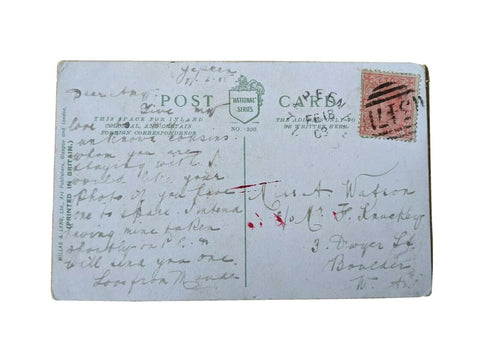 POST CARD
"NATIONAL" SERIES
NO. 200.
THIS SPACE FOR INLAND
COLONIAL AND CERTAIN
FOREIGN CORRESPONDENCE
THE ADDRESS ONLY TO
BE WRITTEN HERE.
MILLAR & LANG, Ltd., Art Publishers, Glasgow and London.
(PRINTED IN BRITAIN.)
FE 18
Dear Amy
Give my
love
unknown cousins.
whom you are
staying with I
would like your
Photo if you have
one to spare. I intend
having mine taken
shortly
will send you one.
Love from Maude
Miss A. Watson
C/o Mr F. Knuckey
3. Dwyer St.
Boulder
W. A.